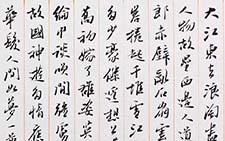 大江東去浪淘盡
人物故壘西邊人道
郎赤壁亂石崩雲
岸捲起千堆雪江
多少豪傑遙想
初嫁了雄姿英
綸巾談笑間強虜
故國神遊多情應
華髮人間如夢一